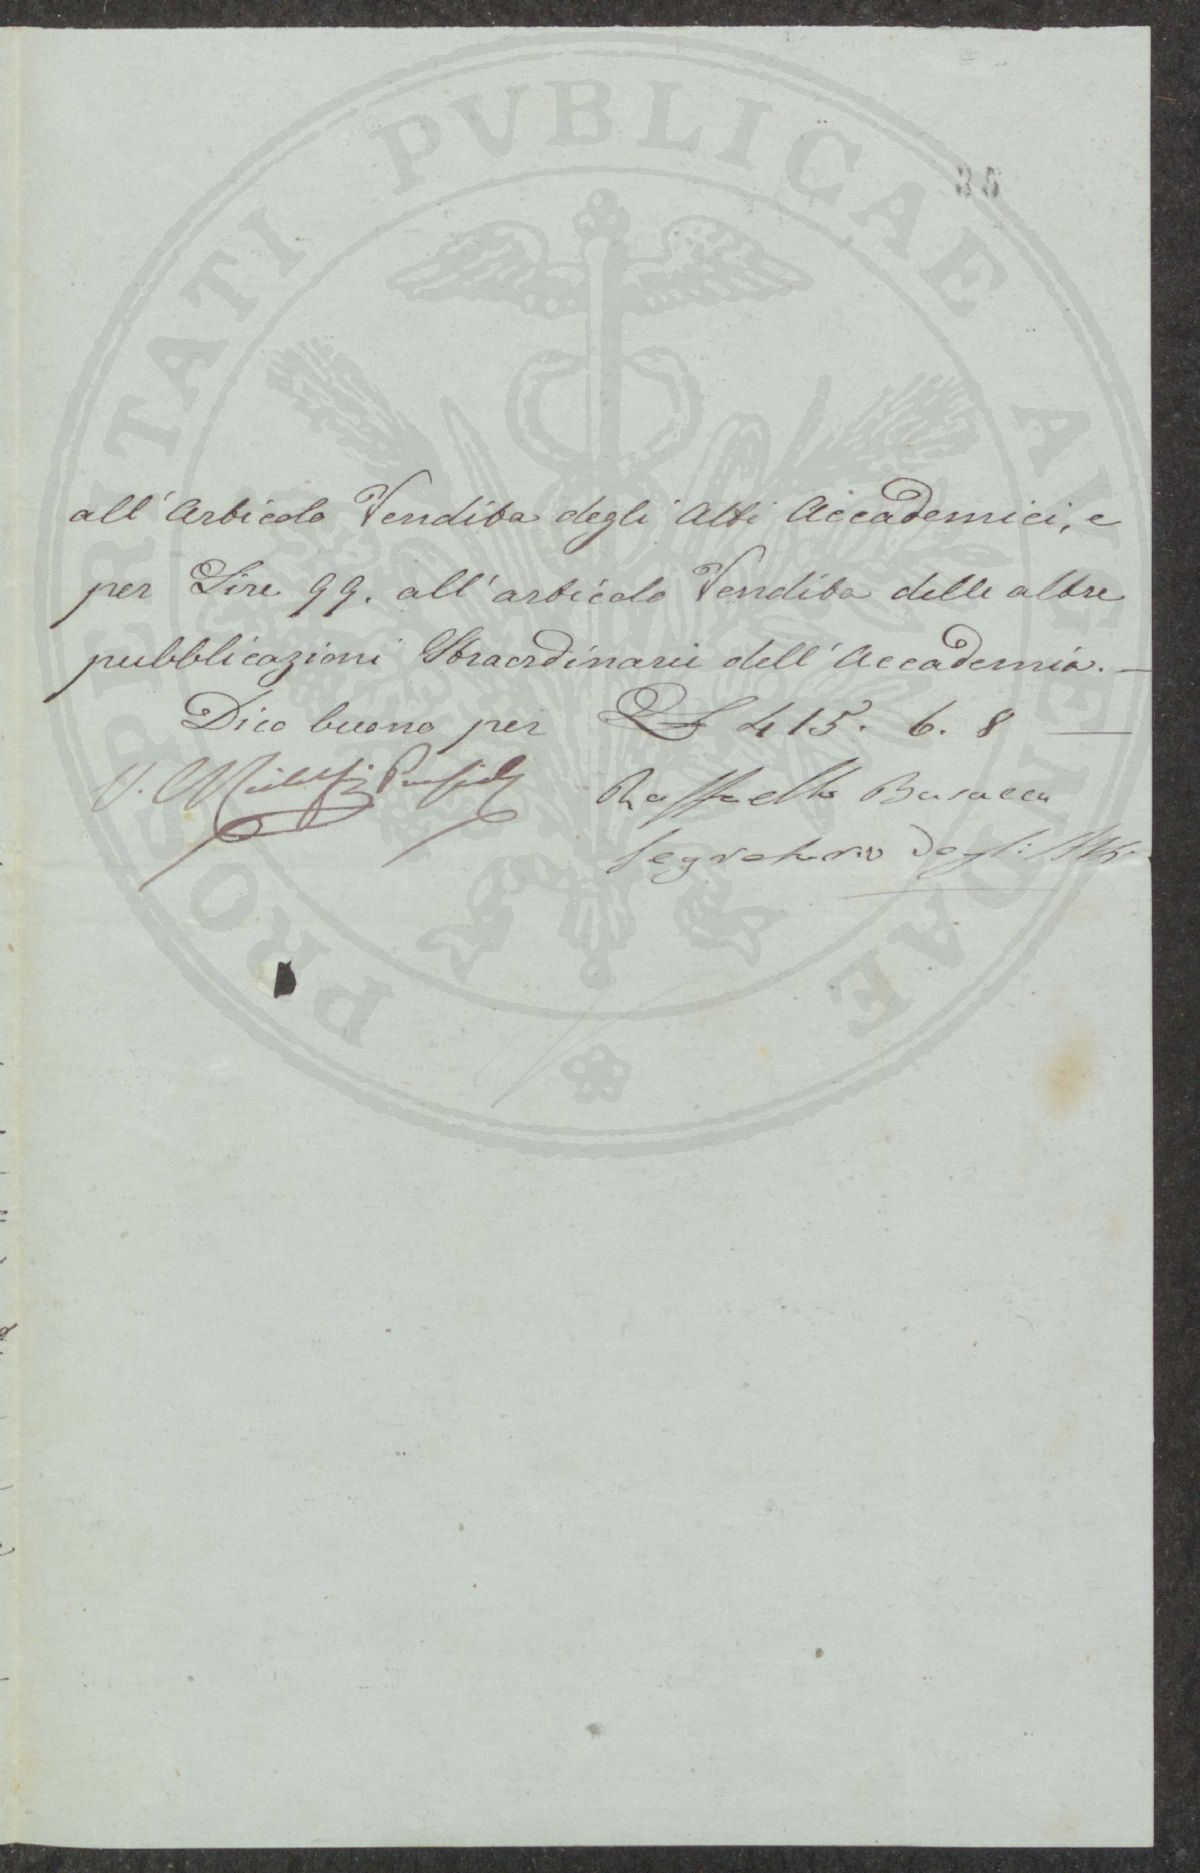 PROSPERITATI PVBLICAE AVGENDAE
35
all'Articolo Vendita degli Atti Accademici, e
per Lire 99. all'articolo Vendita delle altre
pubblicazioni Straordinarie dell'Accademia. —
Dico buono per £ 415. 6. 8 —
V.
Raffaello Busacca
Segretario degli Atti